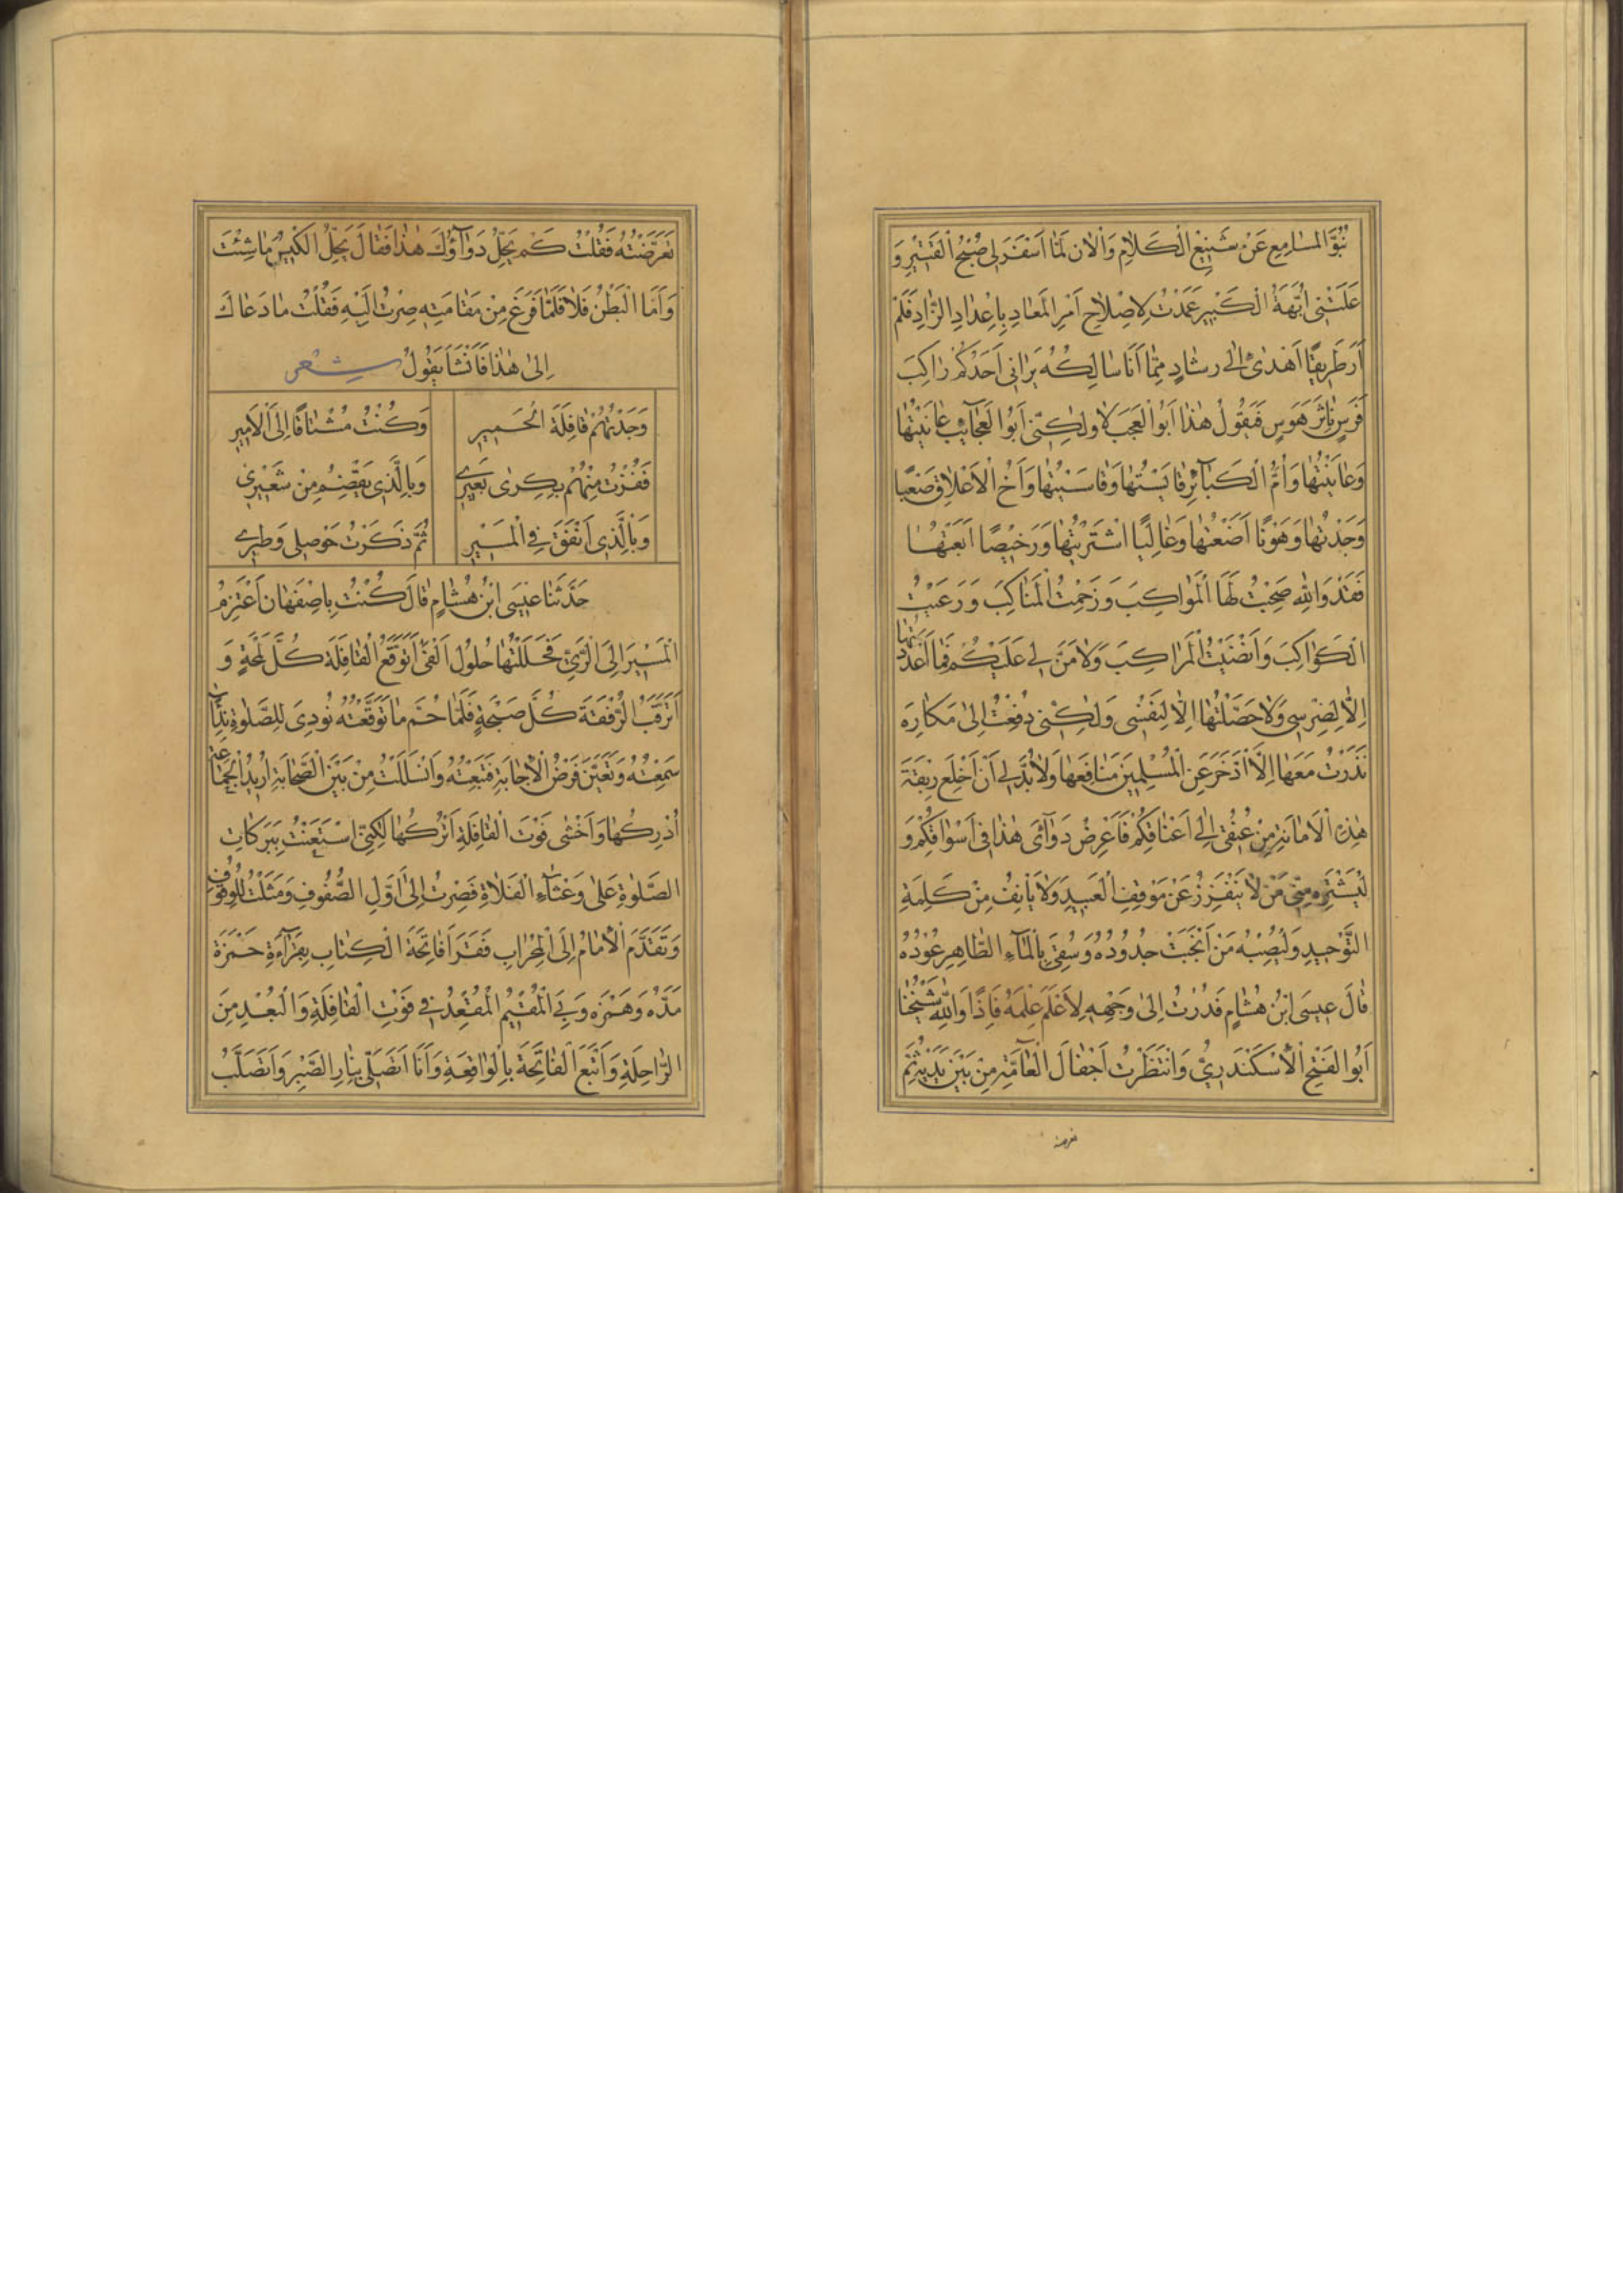 نُبُوَّ المسَامِعِ عَنْ شَنِيعِ الْكَلامِ وَالْانَ لَمَّا اَسْفَرَ لِى صُبْحُ الْقَتِيْرِ وَ
عَلَتْنِى اُبَّهَةُ الْكَبِيرِ عَمَدْتُ لِاِصْلاحِ اَمْرِ الْمَعَادِ بِاِعْدَادِ الزَّادِ فَلَمْ
اَرَ طَرِيقًا اَهْدَى اِلٰى رَشَادٍ مِمَّا اَنَا سَالِكُهُ يَرَانِى اَحَدُكُمْ رَاكِبَ
فَرَسٍ نَاثِرَ هَوَسٍ فَيَقُولُ هٰذَا اَبُو الْعَجَبِ لَا وَلٰكِنِّى اَبُو الْعَجَائِبِ عَايَنْتُهَا
وَعَانَيْتُهَا وَاُمُّ الْكَبَآئِرِ قَايَسْتُهَا وَقَاسَيْتُهَا وَاَخُ الْاَعْلَاقِ صَعْبًا
وَجَدْتُهَا وَهَوْنًا اَضَعْتُهَا وَغَالِيًا اشْتَرَيْتُهَا وَرَخِيْصًا ابْتَعْتُهَا
فَقَدْ وَاللهِ صَحِبْتُ لَهَا الْمَوَاكِبَ وَزَحَمْتُ الْمَنَاكِبَ وَرَعَيْتُ
الْكَوَاكِبَ وَاَنْضَيْتُ الْمَرَاكِبَ وَلَا مَنَّ لِى عَلَيْكُمْ فَمَا اَعْدَدْتُهَا
اِلَّا لِضِرْسِى وَلَا حَصَّلْتُهَا اِلَّا لِنَفْسِى وَلٰكِنِّى دُفِعْتُ اِلٰى مَكَارِهَ
نَذَرْتُ مَعَهَا اِلَّا اَدَّخَرَ عَنِ الْمُسْلِمِينَ مَنَافِعَهَا وَلَا بُدَّ لِى اَنْ اَخْلَعَ رِبْقَةَ
هٰذِهِ الْاَمَانَةِ مِنْ عُنُقِى اِلٰى اَعْنَاقِكُمْ فَاَعْرِضُ دَوَآئِى هٰذَا فِى اَسْوَاقِكُمْ وَ
لْيَشْتَرِهِ مِنِّى مَنْ لَا يَتَقَزَّزُ عَنْ مَوْقِفِ الْعَبِيدِ وَلَا يَاْنِفُ مِنْ كَلِمَةِ
التَّوْحِيدِ وَلْيَصُنْهُ مَنْ اَنْجَبَتْ جُدُودُهُ وَسُقِىَ بِالْمَآءِ الطَّاهِرِ عُودُهُ
قَالَ عِيسَى ابْنُ هِشَامٍ فَدُرْتُ اِلٰى وَجْهِهِ لِاَعْلَمَ عِلْمَهُ فَاِذًا وَاللهِ شَيْخُنَا
اَبُو الْفَتْحِ الْاَسْكَنْدَرِىُّ وَانْتَظَرْتُ اَجْفَالَ الْعَامَّةِ مِنْ بَيْنِ يَدَيْهِ ثُمَّ
تَعَرَّضْتُهُ فَقُلْتُ كَمْ يَحِلُّ دَوَآؤُكَ هٰذَا فَقَالَ يَحِلُّ الْكَيْسُ مَا شِئْتَ
وَاَمَا الْبَطْنُ فَلَا فَلَمَّا فَرَغَ مِنْ مَقَامَتِهِ صِرْتُ اِلَيْهِ فَقُلْتُ مَا دَعَاكَ
اِلٰى هٰذَا فَاَنْشَاَ يَقُولُ شِعْر
وَجَدْتُهُمْ قَافِلَةَ الْحَمِيرِ وَكُنْتُ مُشْتَاقًا اِلَى الْاَمِيرِ
فَفُزْتُ مِنْهُمْ بِكِرَى بَعِيرِى وَبِالَّذِى يَقْضِمُ مِنْ شَعِيْرِى
وَبِالَّذِى اَنْفَقَ فِى الْمَسِيْرِ ثُمَّ ذَكَرْتُ حَوْصِلِى وَطِيرِى
حَدَّثَنَا عِيْسَى ابْنُ هِشَامٍ قَالَ كُنْتُ بِاِصْفَهَانَ اَعْتَزِمُ
الْمَسِيْرَ اِلَى الرَّىِّ فَحَلَلْتُهَا حُلُولَ الْفَئِّ اَتَوَقَّعُ الْقَافِلَةَ كُلَّ لَمْحَةٍ وَ
اَتَرَقَّبُ الرُّفْقَةَ كُلَّ صَبِحَةٍ فَلَمَّا حُمَّ مَا تَوَقَّعْتُهُ نُودِىَ لِلصَّلٰوةِ نِدَآءً
سَمِعْتُهُ وَتَعَيَّنَ فَرْضُ الْاِجَابَةِ فَتَبِعْتُهُ وَانْسَلَلْتُ مِنْ بَيْنِ الصَّحَابَةِ اُرِيْدُ الْجَمَاعَةَ
اُدْرِكُهَا وَاَخْشٰى فَوْتَ الْقَافِلَةِ اَتْرُكُهَا لٰكِنِّى اسْتَعَنْتُ بِبَرَكَاتِ
الصَّلٰوةِ عَلٰى وَعْثَآءِ الْفَلَاةِ فَصِرْتُ اِلٰى اَوَّلِ الصُّفُوفِ وَمَثَلْتُ لِلْوُقُوفِ
وَتَقَدَّمَ الْاِمَامُ اِلَى الْمِحْرَابِ فَقَرَاَ فَاتِحَةَ الْكِتَابِ بِقِرَآءَةِ حَمْزَةَ
مَدَّهُ وَهَمْزَهُ وَبِىَ الْمُقِيْمُ الْمُقْعِدُ فِى فَوْتِ الْقَافِلَةِ وَالْبُعْدِ مِنَ
الرَّاحِلَةِ وَاَتْبَعَ الْفَاتِحَةَ بِالْوَاقِعَةِ وَاَنَا اَتَصَلَّى بِنَارِ الصَّبْرِ وَاَتَصَلَّبُ